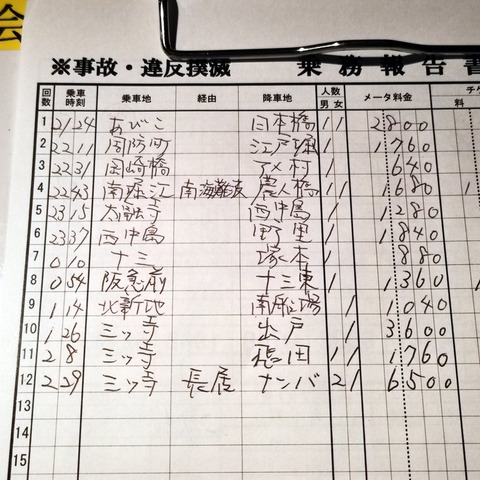 会
※事故・違反撲滅 乗務報告書
回数 乗車時刻 乗車地 経由 降車地 人数 男 女 メータ料金 チケ 料
1 21 24 あびこ 日本橋 1 1 2800
2 22 11 周防町 江戸堀 1 1760
3 22 31 岡崎橋 アメ村 1 640
4 22 43 南堀江 南海難波 農人橋 1 1 1680 1
5 23 15 大融寺 西中島 1 1280
6 23 37 西中島 野里 1 1840
7 0 10 十三 塚本 1 880
8 0 54 阪急前 十三東 1 1360 1
9 1 14 北新地 南船場 1 1040
10 1 26 三ッ寺 出戸 1 3600
11 2 8 三ッ寺 1 1 1760
12 2 29 三ッ寺 長居 ナンバ 2 1 6500
13
14
15